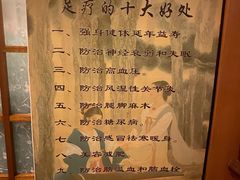 足疗的十大好处
一、强身健体延年益寿
二、防治神经衰弱和失眠
三、防治高血压
四、防治风湿性关节炎
五、防治腿脚麻木。
六、防治糖尿病。
七、防治感冒祛寒暖身。
八、美容减肥
九、防治脑溢血和脑血栓